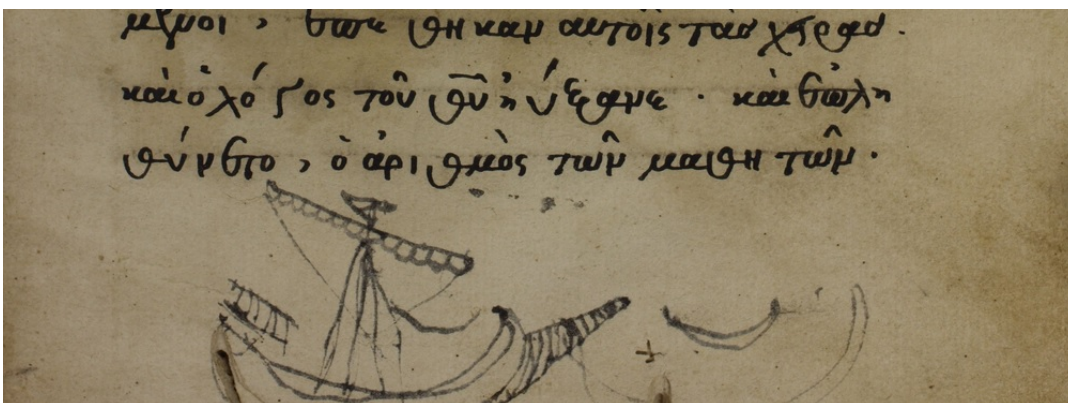 μενοι, ἐπέθηκαν αὐτοῖς τὰς χεῖρας.
καὶ ὁ λόγος τοῦ θυ ηὔξανε · καὶ ἐπλη
θύνετο, ὁ ἀριθμὸς τῶν μαθητῶν.